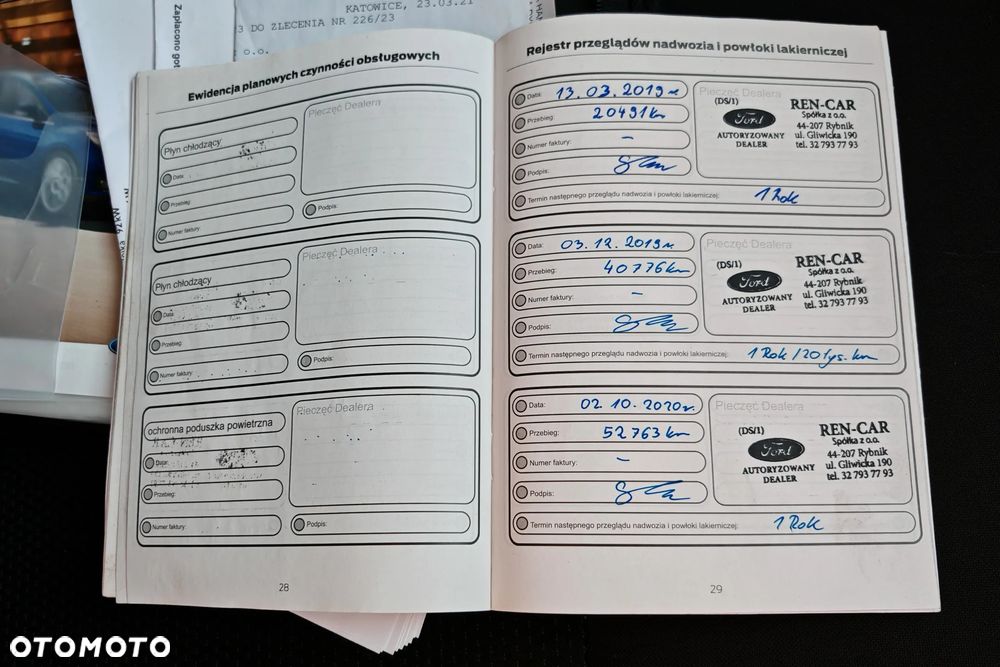 Zapłacono got
KATOWICE, 23.03.21
3 DO ZLECENIA NR 226/23
o.o.
Ewidencja planowych czynności obsługowych
Płyn chłodzący
Data:
Przebieg:
Numer faktury:
Pieczęć Dealera
Podpis:
Płyn chłodzący
Data:
Przebieg:
Numer faktury:
Pieczęć Dealera
Podpis:
ochronna poduszka powietrzna
Data:
Przebieg:
Numer faktury:
Pieczęć Dealera
Podpis:
28
Rejestr przeglądów nadwozia i powłoki lakierniczej
Data: 13.03.2019r
Przebieg: 20491km
Numer faktury: –
Podpis:
Pieczęć Dealera
(DS/1)
Ford
AUTORYZOWANY
DEALER
REN-CAR
Spółka z o.o.
44-207 Rybnik
ul. Gliwicka 190
tel. 32 793 77 93
Termin następnego przeglądu nadwozia i powłoki lakierniczej: 1 Rok
Data: 03.12.2019r
Przebieg: 40776km
Numer faktury: –
Podpis:
Pieczęć Dealera
(DS/1)
Ford
AUTORYZOWANY
DEALER
REN-CAR
Spółka z o.o.
44-207 Rybnik
ul. Gliwicka 190
tel. 32 793 77 93
Termin następnego przeglądu nadwozia i powłoki lakierniczej: 1 Rok/20 tys. km
Data: 02.10.2020r.
Przebieg: 52763km
Numer faktury: –
Podpis:
Pieczęć Dealera
(DS/1)
Ford
AUTORYZOWANY
DEALER
REN-CAR
Spółka z o.o.
44-207 Rybnik
ul. Gliwicka 190
tel. 32 793 77 93
Termin następnego przeglądu nadwozia i powłoki lakierniczej: 1 Rok
29
OTOMOTO